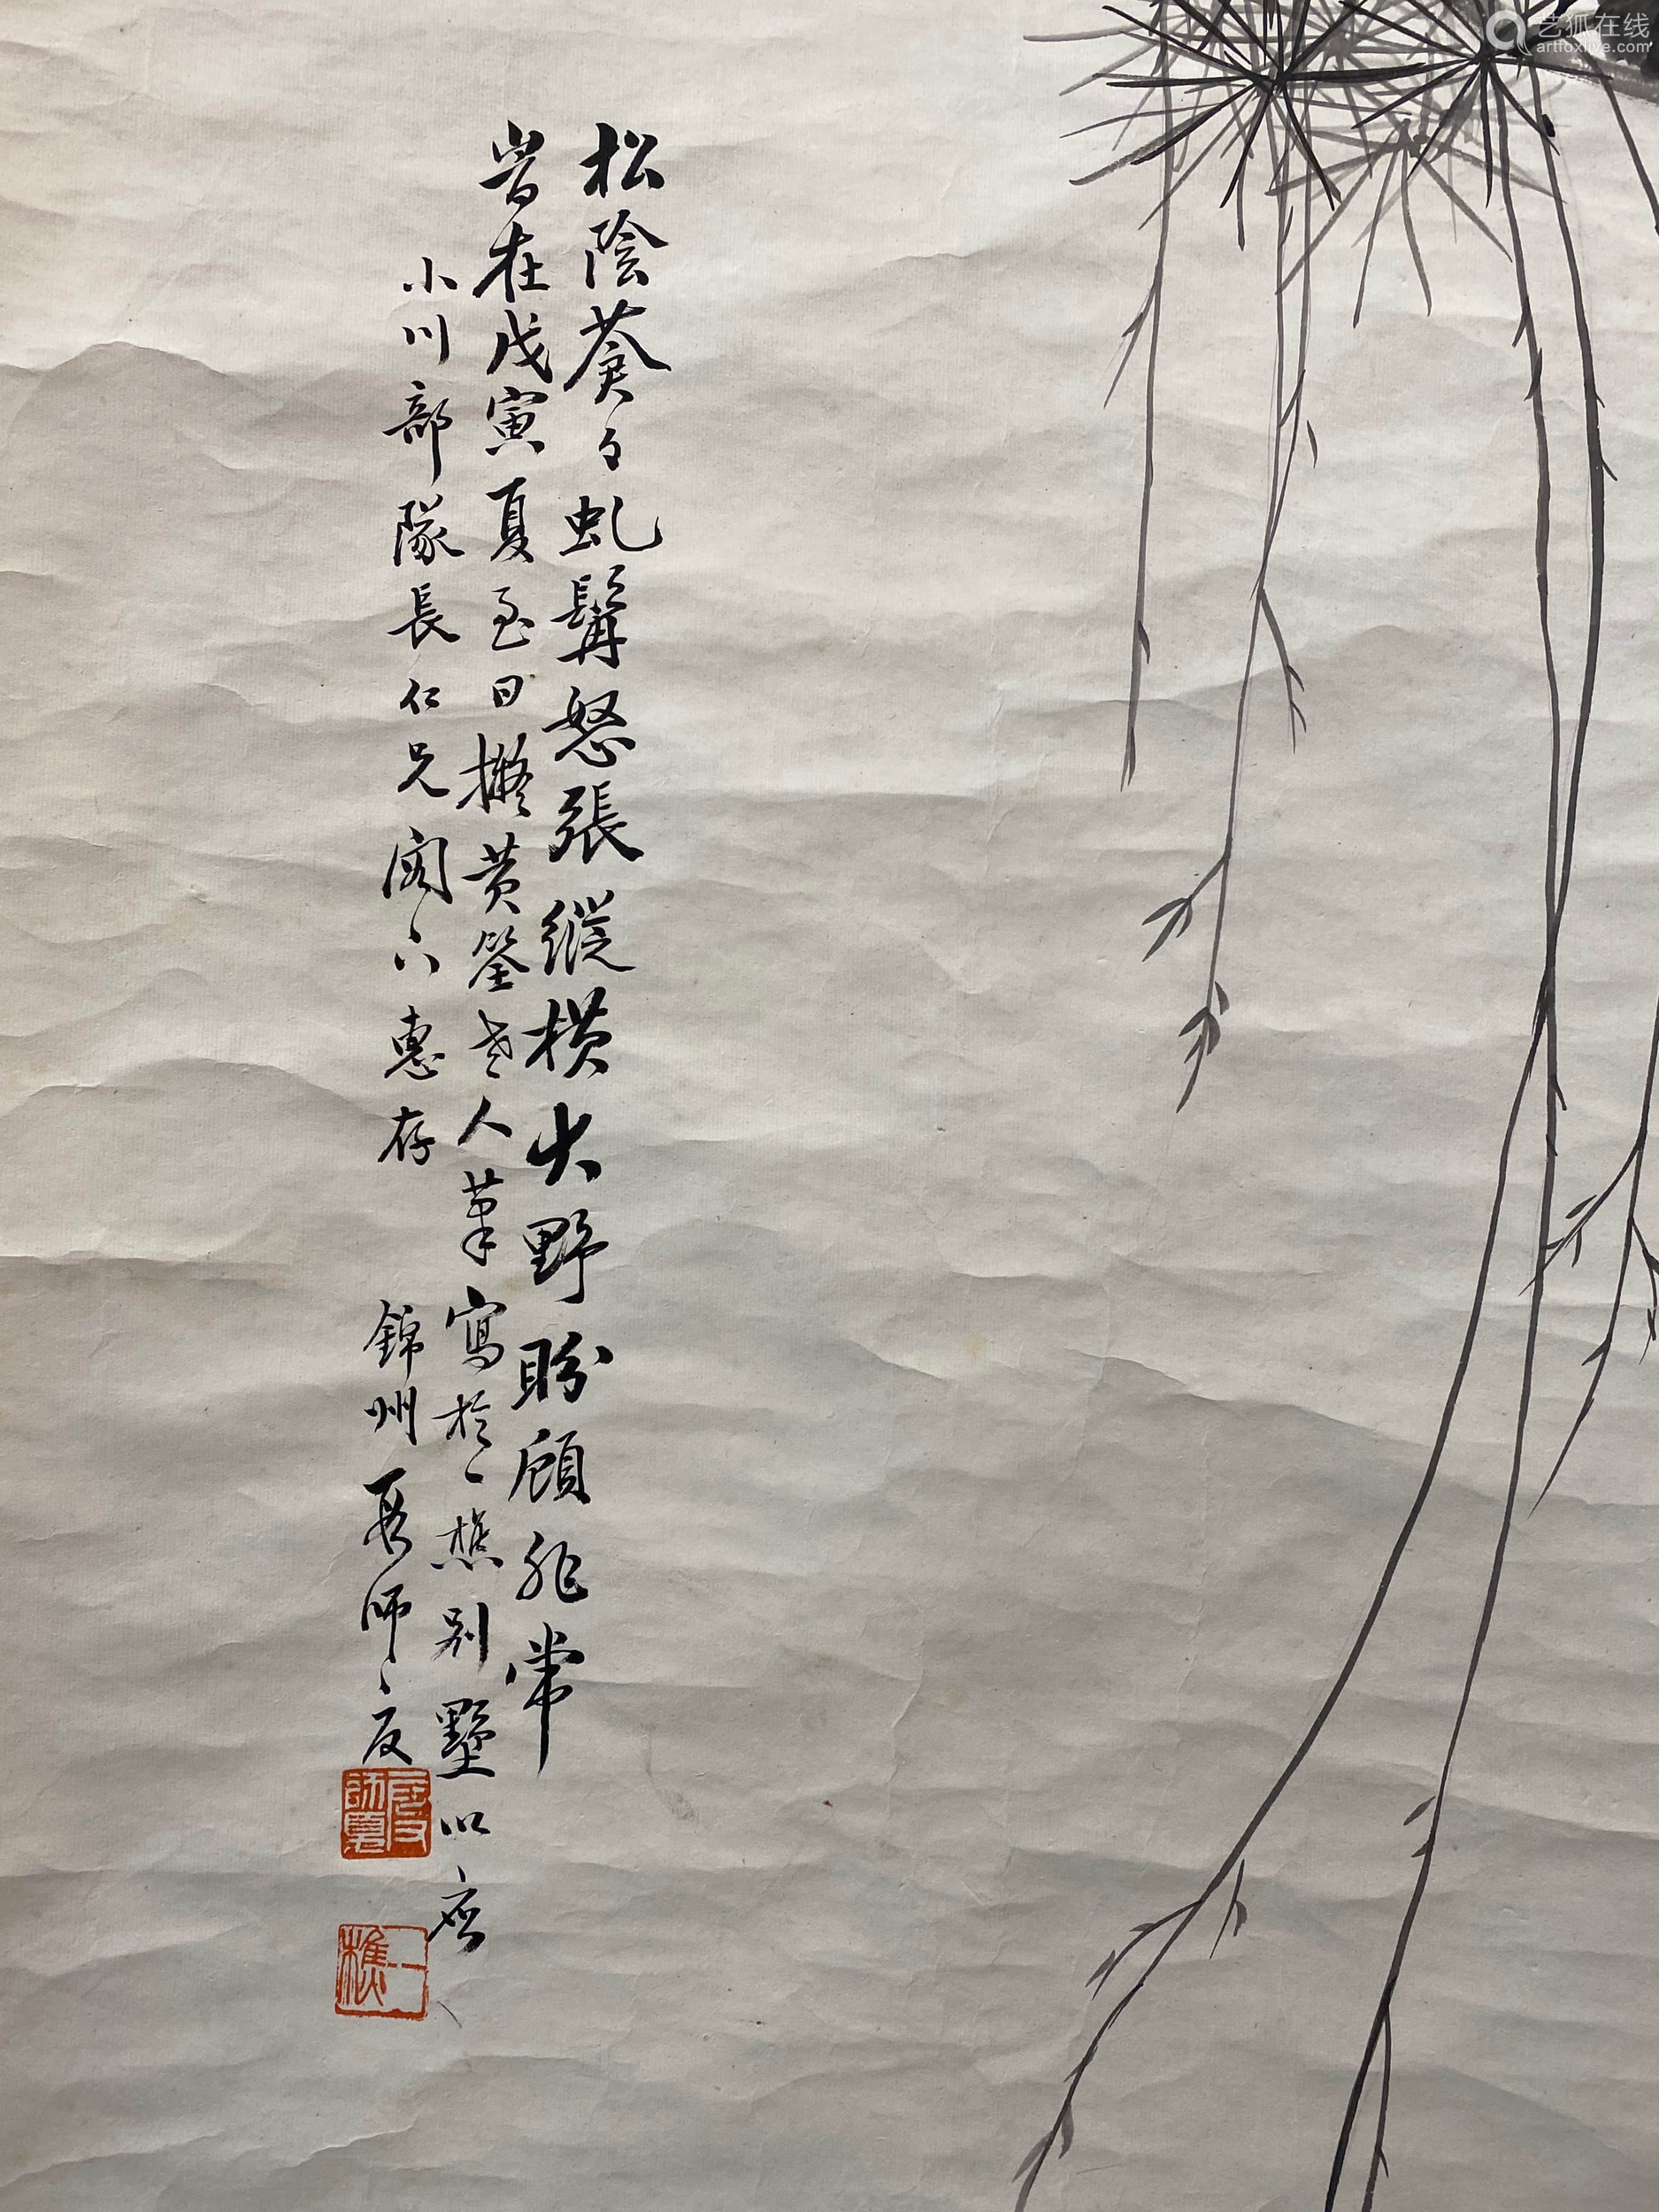 松陰蒼々虬髯怒張縱橫大野盼顧非常
峕在戊寅夏至日擬黃筌老人筆寫於一樵別墅以應
小川部隊長仁兄閣下惠存
錦州 師友
一樵
艺狐在线
artfoxlive.com